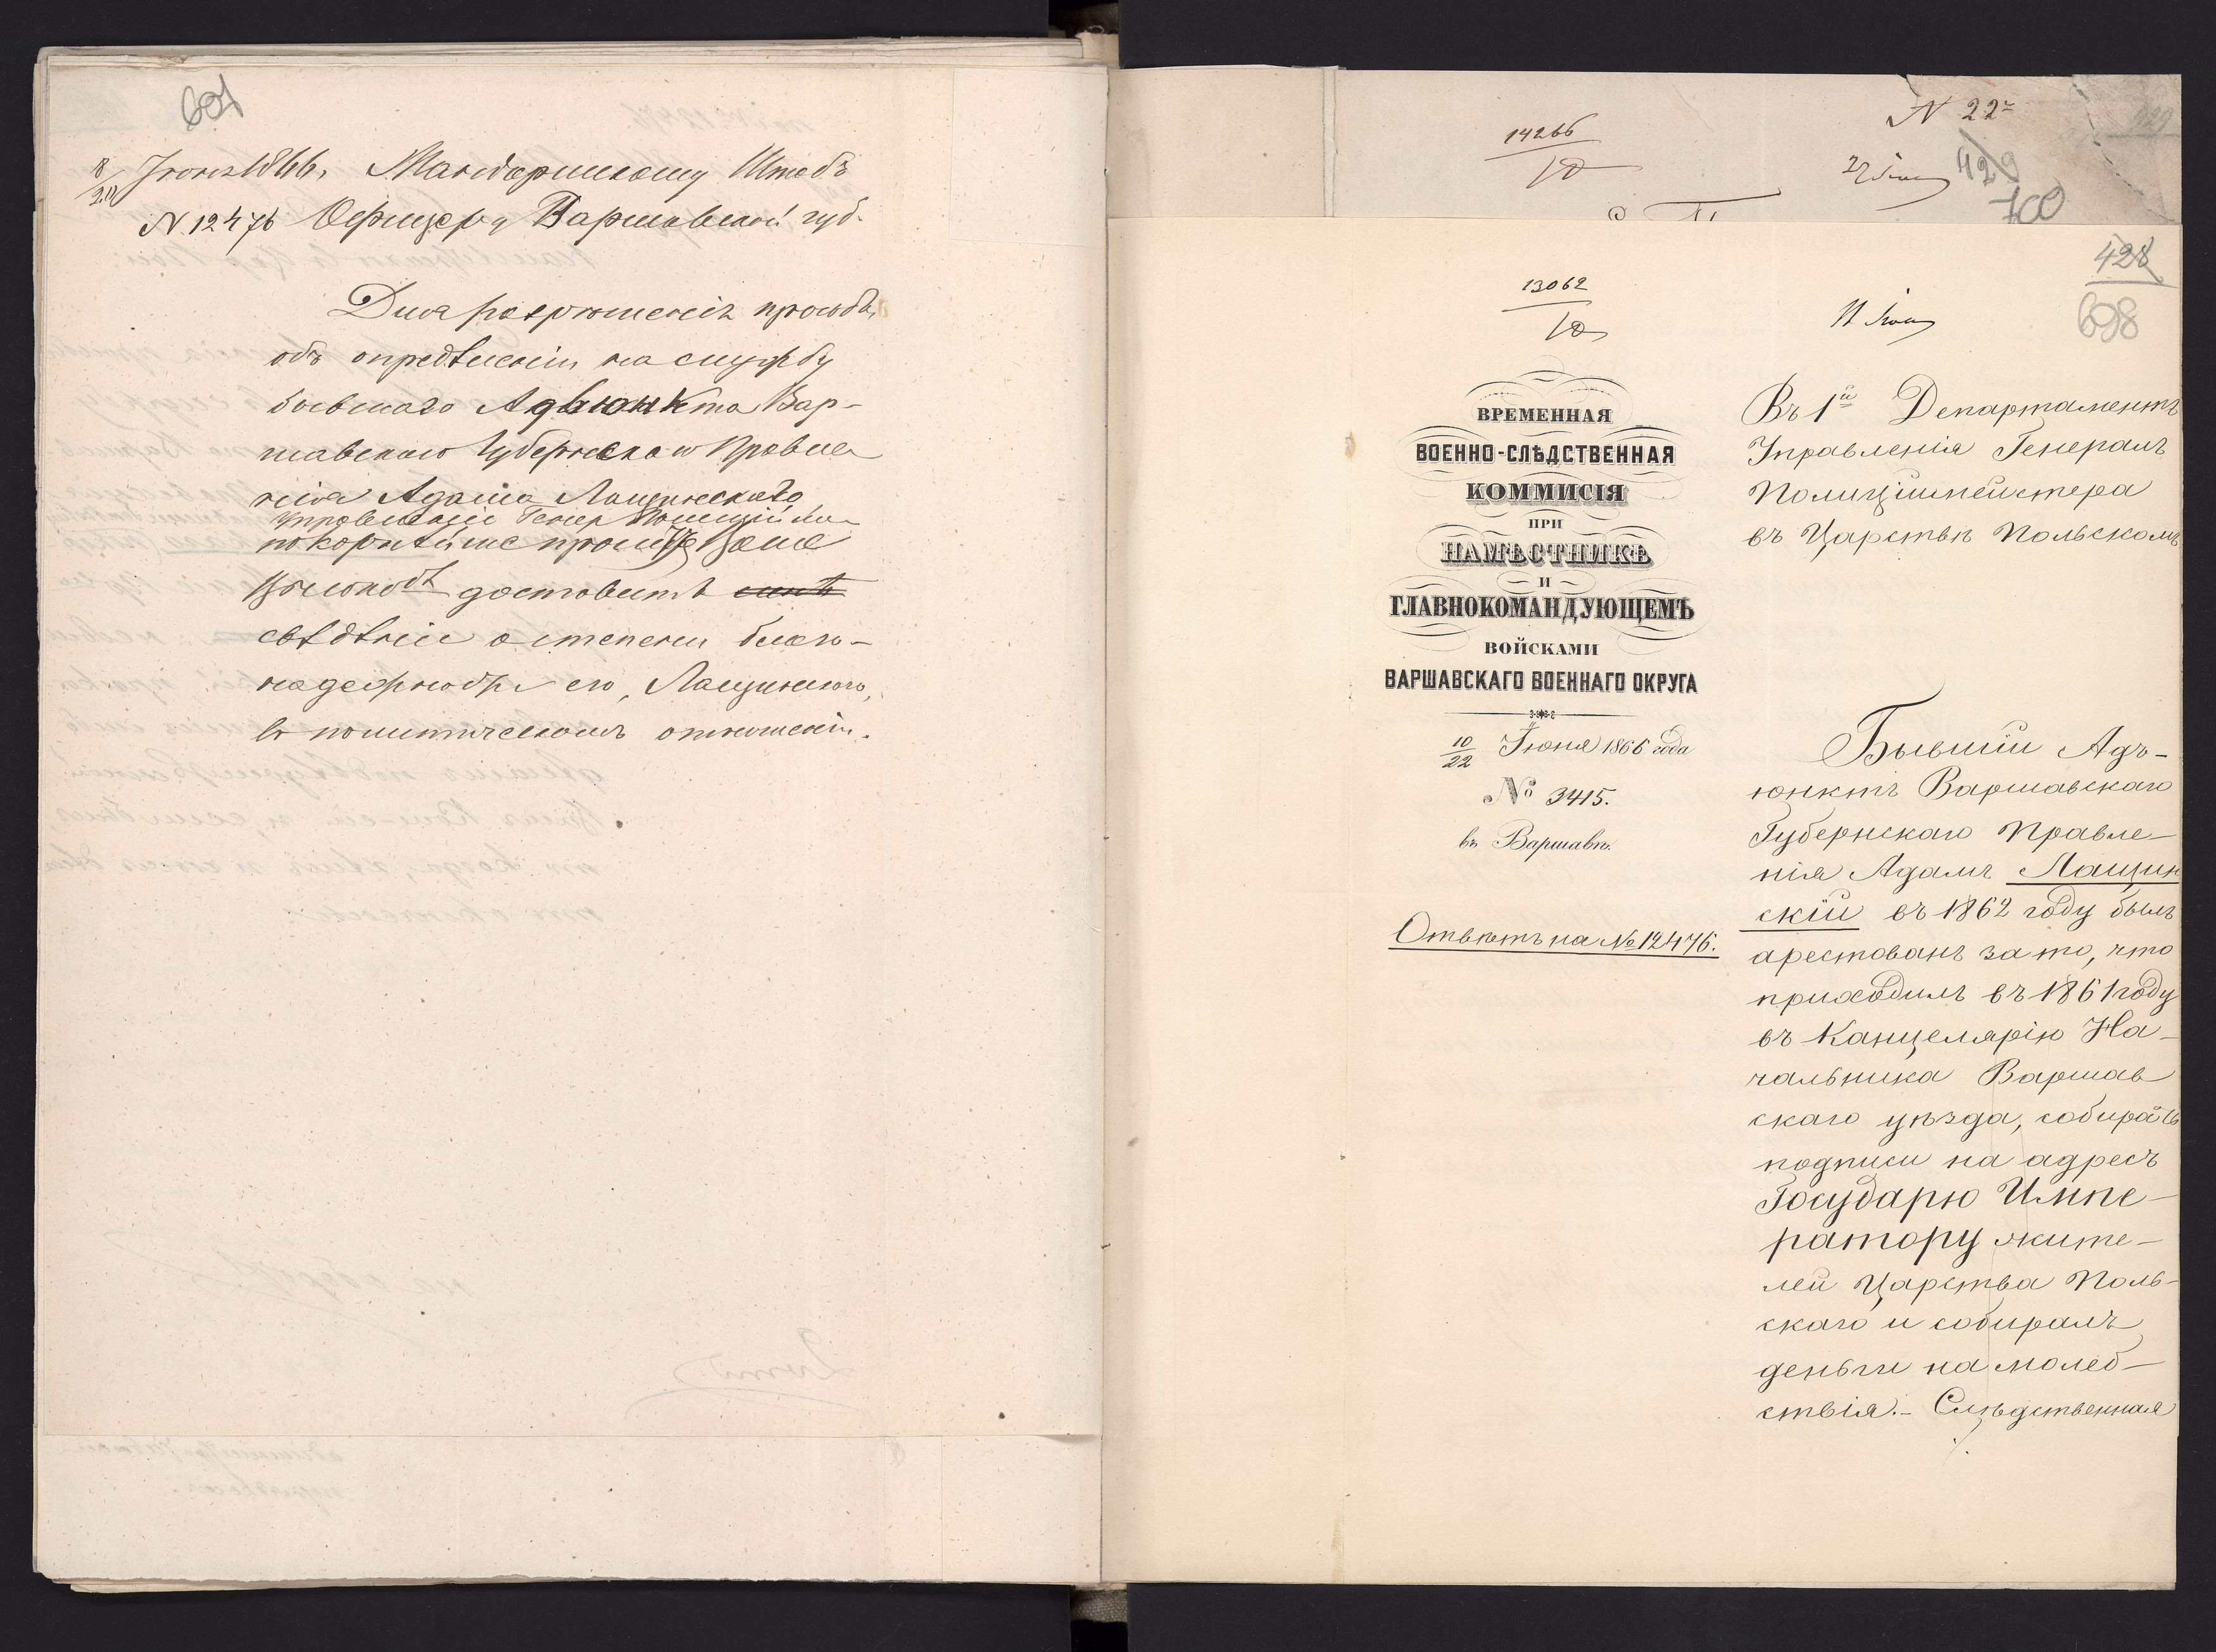 601
8/20 Іюня 1866. Жандармскому Штабъ
N 12476 Офицеру Варшавской губ.
Для разрѣшенія просьбы
объ опредѣленіи на службу
бывшаго Адъюнкта Вар-
шавскаго Губернскаго Правле
нія Адама Лащинскаго
Управленіе Генер Полиціймей
покорнѣйше проситъ Ваше
Высокобл доставить мнѣ
свѣдѣніе о степени благо-
надежности его, Лащинскаго,
въ политическомъ отношеніи.
N 22
14266
10
22 Іюня
429
700
428
13062
10
11 Іюня
698
ВРЕМЕННАЯ
ВОЕННО-СЛѢДСТВЕННАЯ
КОММИСІЯ
ПРИ
НАМѢСТНИКѢ
И
ГЛАВНОКОМАНДУЮЩЕМЪ
ВОЙСКАМИ
ВАРШАВСКАГО ВОЕННАГО ОКРУГА
10/22 Іюня 1866 года
№ 3415.
въ Варшавѣ.
Отвѣтъ на № 12476.
Въ 1й Департаментъ
Управленія Генералъ
Полиціймейстера
въ Царствѣ Польскомъ
Бывшій Адъ-
юнктъ Варшавскаго
Губернскаго Правле-
нія Адамъ Лащин
скій въ 1862 году былъ
арестованъ за то, что
приходилъ въ 1861 году
въ Канцелярію На-
чальника Варшав
скаго уѣзда, собирать
подписи на адресъ
Государю Импе-
ратору жите-
лей Царства Поль-
скаго и собиралъ
деньги на молеб-
ствія. - Слѣдственная